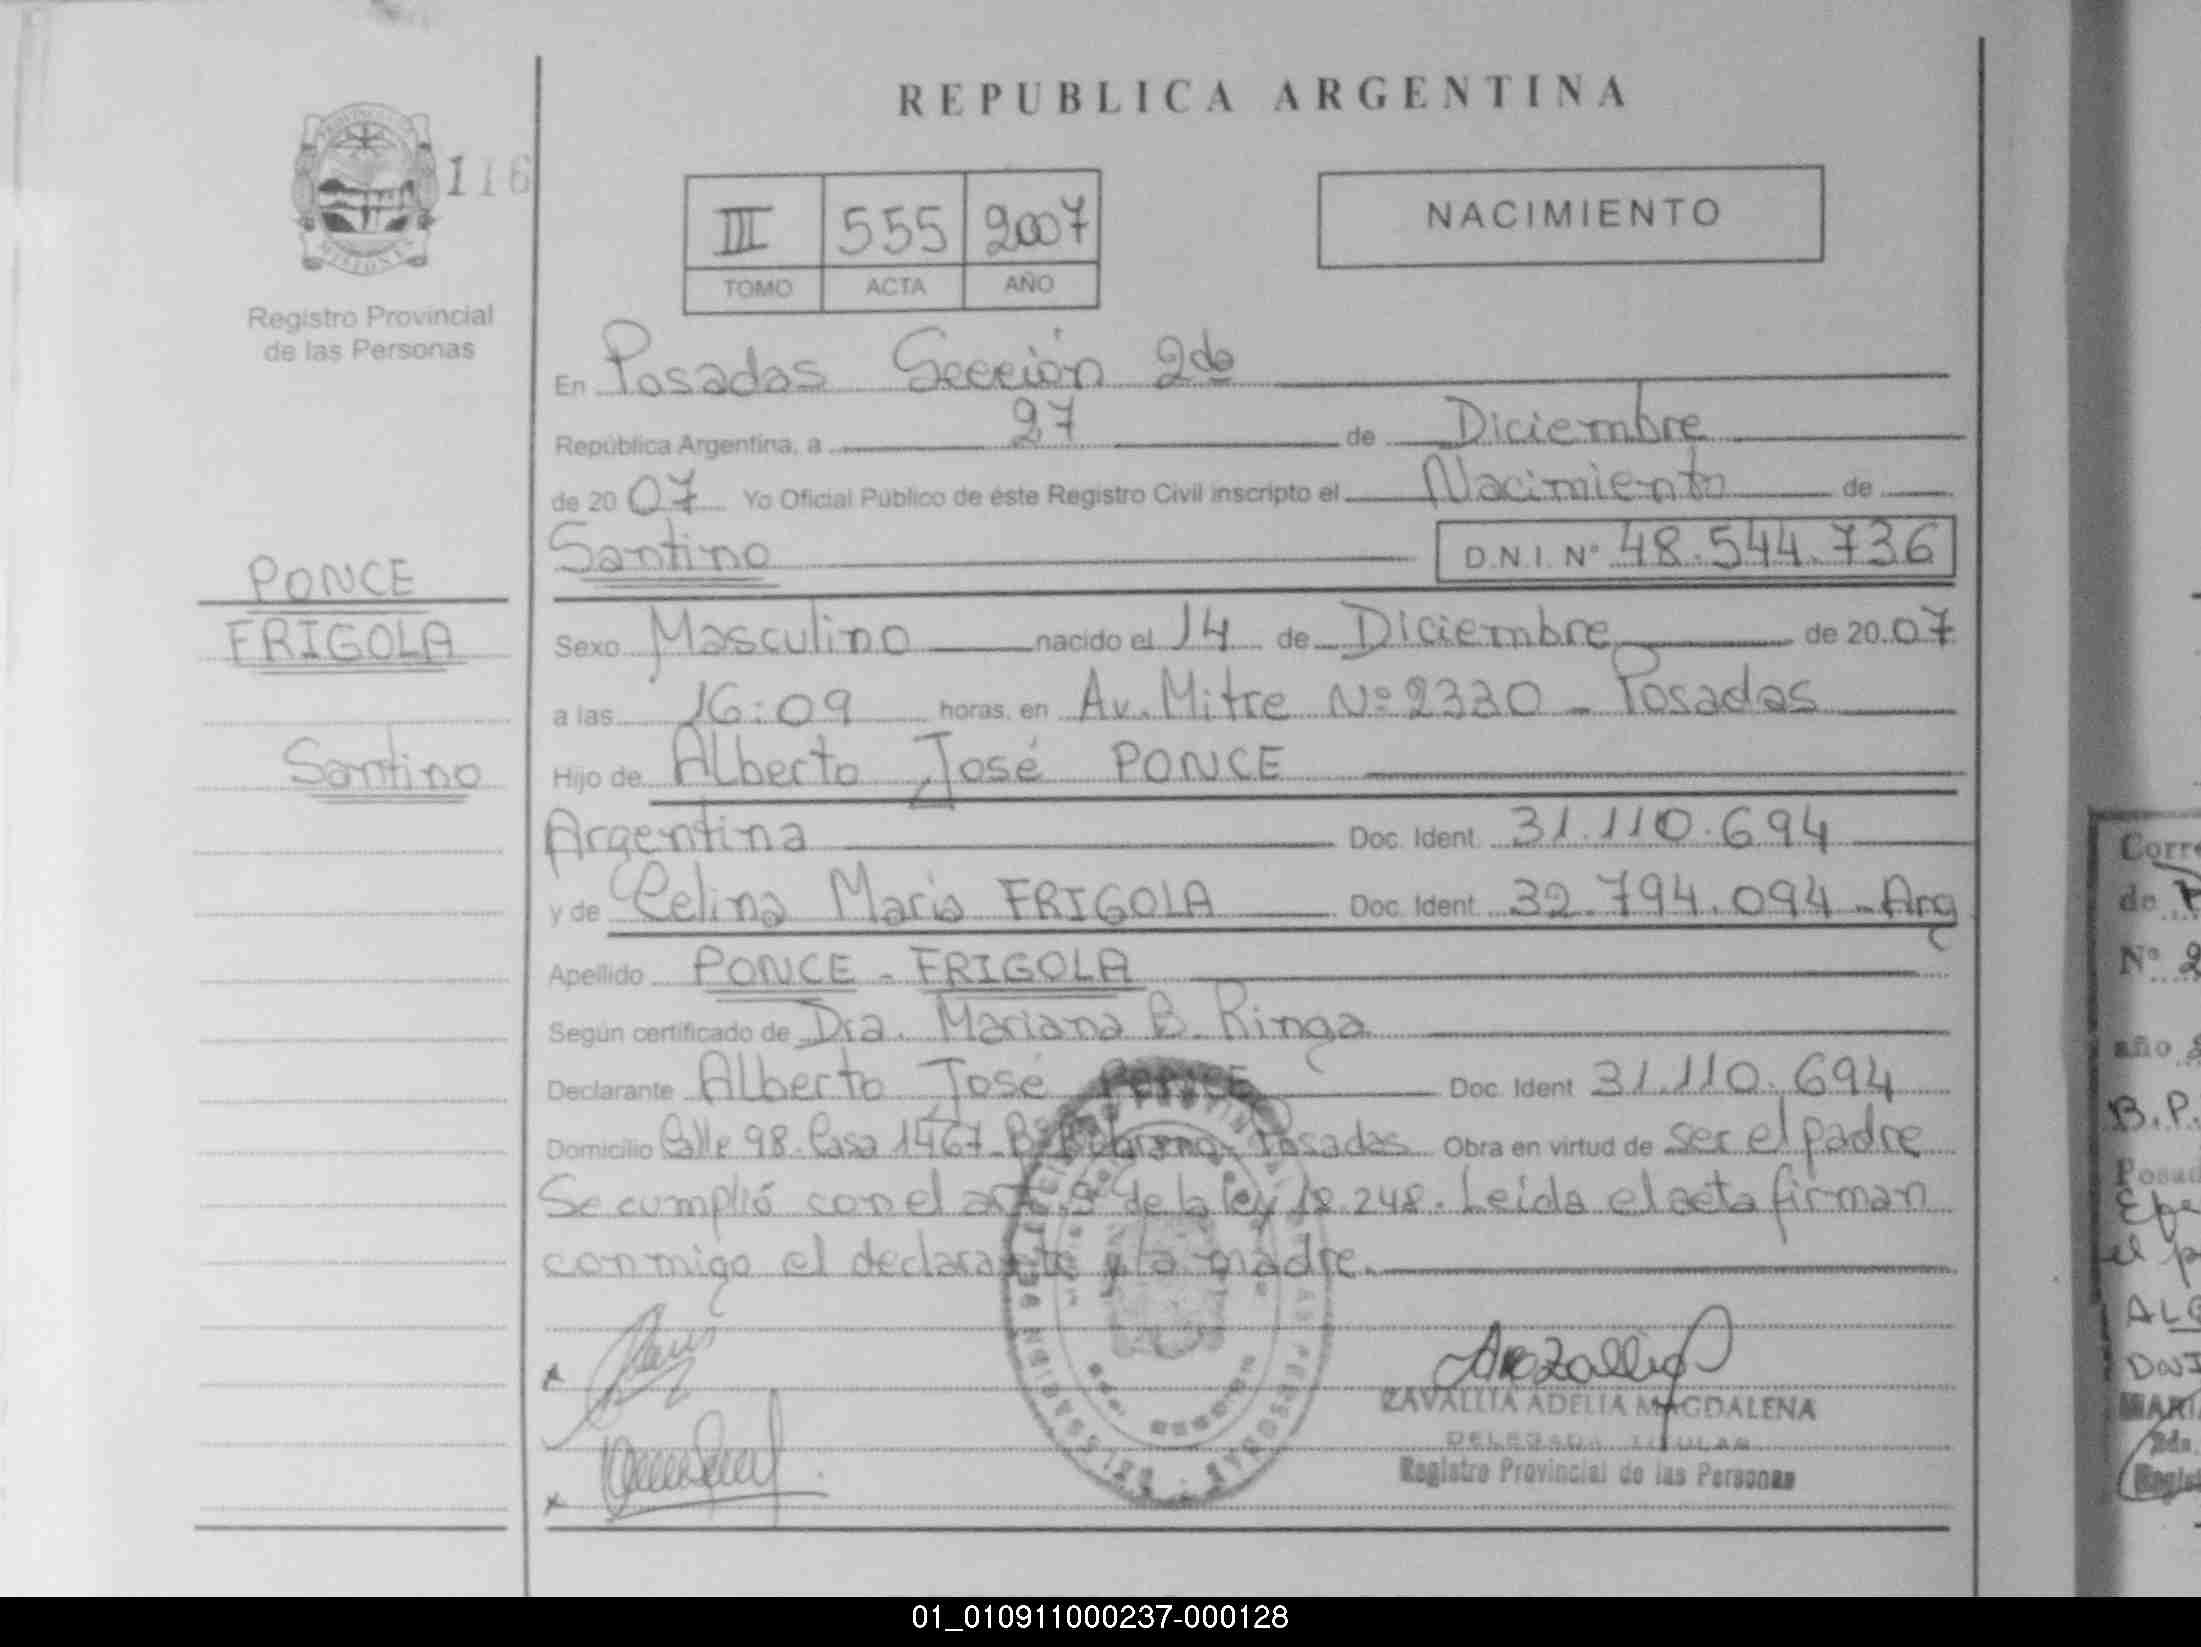 REPUBLICA ARGENTINA
116
III 555 2007
TOMO ACTA AÑO
NACIMIENTO
Registro Provincial
de las Personas
En Posadas Sección 2da
República Argentina, a 27 de Diciembre
de 2007 Yo Oficial Público de éste Registro Civil inscripto el Nacimiento de
Santino D.N.I. Nº 48.544.736
PONCE
FRIGOLA
Santino
Sexo Masculino nacido el 14 de Diciembre de 2007
a las 16:09 horas, en Av. Mitre Nº 2330 - Posadas
Hijo de Alberto José PONCE
Argentina Doc. Ident. 31.110.694
y de Celina María FRIGOLA Doc. Ident. 32.794.094 - Arg
Apellido PONCE - FRIGOLA
Según certificado de Dra. Mariana B. Ringa
Declarante Alberto José PONCE Doc. Ident 31.110.694
Domicilio Calle 98. Casa 1467 - Posadas Obra en virtud de ser el padre
Se cumplió con el art. 9 de la ley 18.248. Leída el acta firman
conmigo el declarante y la madre.
ZAVALLIA ADELIA MAGDALENA
DELEGADA TITULAR
Registro Provincial de las Personas
Corre
de P
Nº 2
año
B.P.
Posad
el p
DNI
01_010911000237-000128